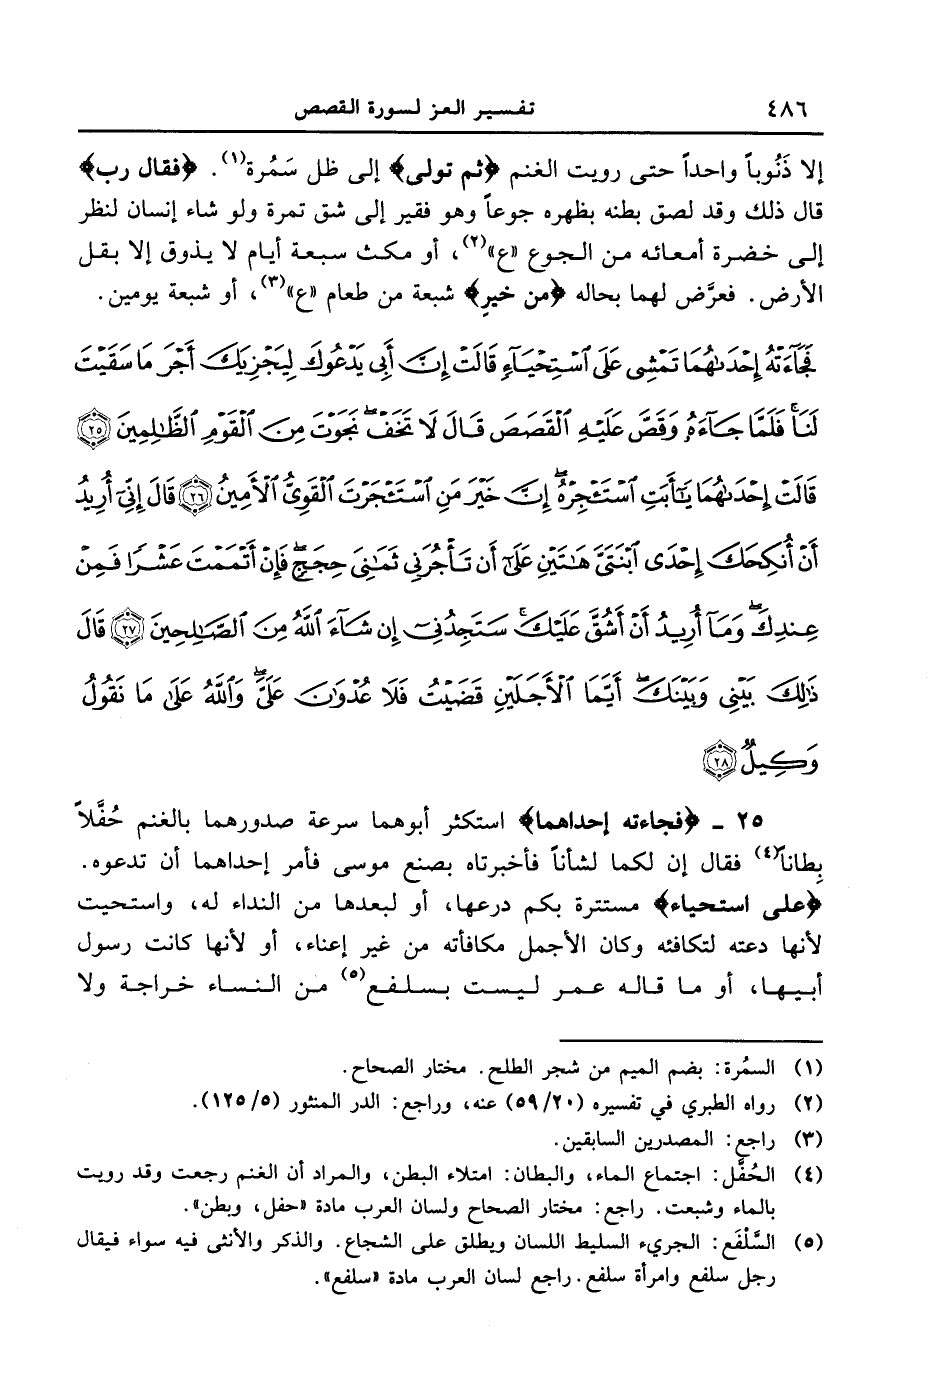 ٤٨٦ تفسير العز لسورة القصص
إلا ذَنُوباً واحداً حتى رويت الغنم ﴿ثم تولى﴾ إلى ظل سَمُرة(١). ﴿فقال رب﴾
قال ذلك وقد لصق بطنه بظهره جوعاً وهو فقير إلى شق تمرة ولو شاء إنسان لنظر
إلى خضرة أمعائه من الجوع «ع»(٢)، أو مكث سبعة أيام لا يذوق إلا بقل
الأرض. فعرَّض لهما بحاله ﴿من خيرٍ﴾ شبعة من طعام «ع»(٣)، أو شبعة يومين.
فَجَآءَتْهُ إِحْدَىٰهُمَا تَمْشِى عَلَى ٱسْتِحْيَآءٍ قَالَتْ إِنَّ أَبِى يَدْعُوكَ لِيَجْزِيَكَ أَجْرَ مَا سَقَيْتَ
لَنَا ۚ فَلَمَّا جَآءَهُۥ وَقَصَّ عَلَيْهِ ٱلْقَصَصَ قَالَ لَا تَخَفْ ۖ نَجَوْتَ مِنَ ٱلْقَوْمِ ٱلظَّٰلِمِينَ ٢٥
قَالَتْ إِحْدَىٰهُمَا يَٰٓأَبَتِ ٱسْتَـْٔجِرْهُ ۖ إِنَّ خَيْرَ مَنِ ٱسْتَـْٔجَرْتَ ٱلْقَوِىُّ ٱلْأَمِينُ ٢٦ قَالَ إِنِّىٓ أُرِيدُ
أَنْ أُنكِحَكَ إِحْدَى ٱبْنَتَىَّ هَٰتَيْنِ عَلَىٰٓ أَن تَأْجُرَنِى ثَمَٰنِىَ حِجَجٍ ۖ فَإِنْ أَتْمَمْتَ عَشْرًا فَمِنْ
عِندِكَ ۖ وَمَآ أُرِيدُ أَنْ أَشُقَّ عَلَيْكَ ۚ سَتَجِدُنِىٓ إِن شَآءَ ٱللَّهُ مِنَ ٱلصَّٰلِحِينَ ٢٧ قَالَ
ذَٰلِكَ بَيْنِى وَبَيْنَكَ ۖ أَيَّمَا ٱلْأَجَلَيْنِ قَضَيْتُ فَلَا عُدْوَٰنَ عَلَىَّ ۖ وَٱللَّهُ عَلَىٰ مَا نَقُولُ
وَكِيلٌ ٢٨
٢٥ - ﴿فجاءته إحداهما﴾ استكثر أبوهما سرعة صدورهما بالغنم حُفَّلاً
بِطاناً(٤) فقال إن لكما لشأناً فأخبرتاه بصنع موسى فأمر إحداهما أن تدعوه.
﴿على استحياء﴾ مستترة بكم درعها، أو لبعدها من النداء له، واستحيت
لأنها دعته لتكافئه وكان الأجمل مكافأته من غير إعناء، أو لأنها كانت رسول
أبيها، أو ما قاله عمر ليست بسلفع(٥) من النساء خراجة ولا
(١) السمُرة: بضم الميم من شجر الطلح. مختار الصحاح.
(٢) رواه الطبري في تفسيره (٥٩/٢٠) عنه، وراجع: الدر المنثور (١٢٥/٥).
(٣) راجع: المصدرين السابقين.
(٤) الحُفَّل: اجتماع الماء، والبطان: امتلاء البطن، والمراد أن الغنم رجعت وقد رويت
بالماء وشبعت. راجع: مختار الصحاح ولسان العرب مادة «حفل، وبطن».
(٥) السَّلْفَع: الجريء السليط اللسان ويطلق على الشجاع. والذكر والأنثى فيه سواء فيقال
رجل سلفع وامرأة سلفع. راجع لسان العرب مادة «سلفع».